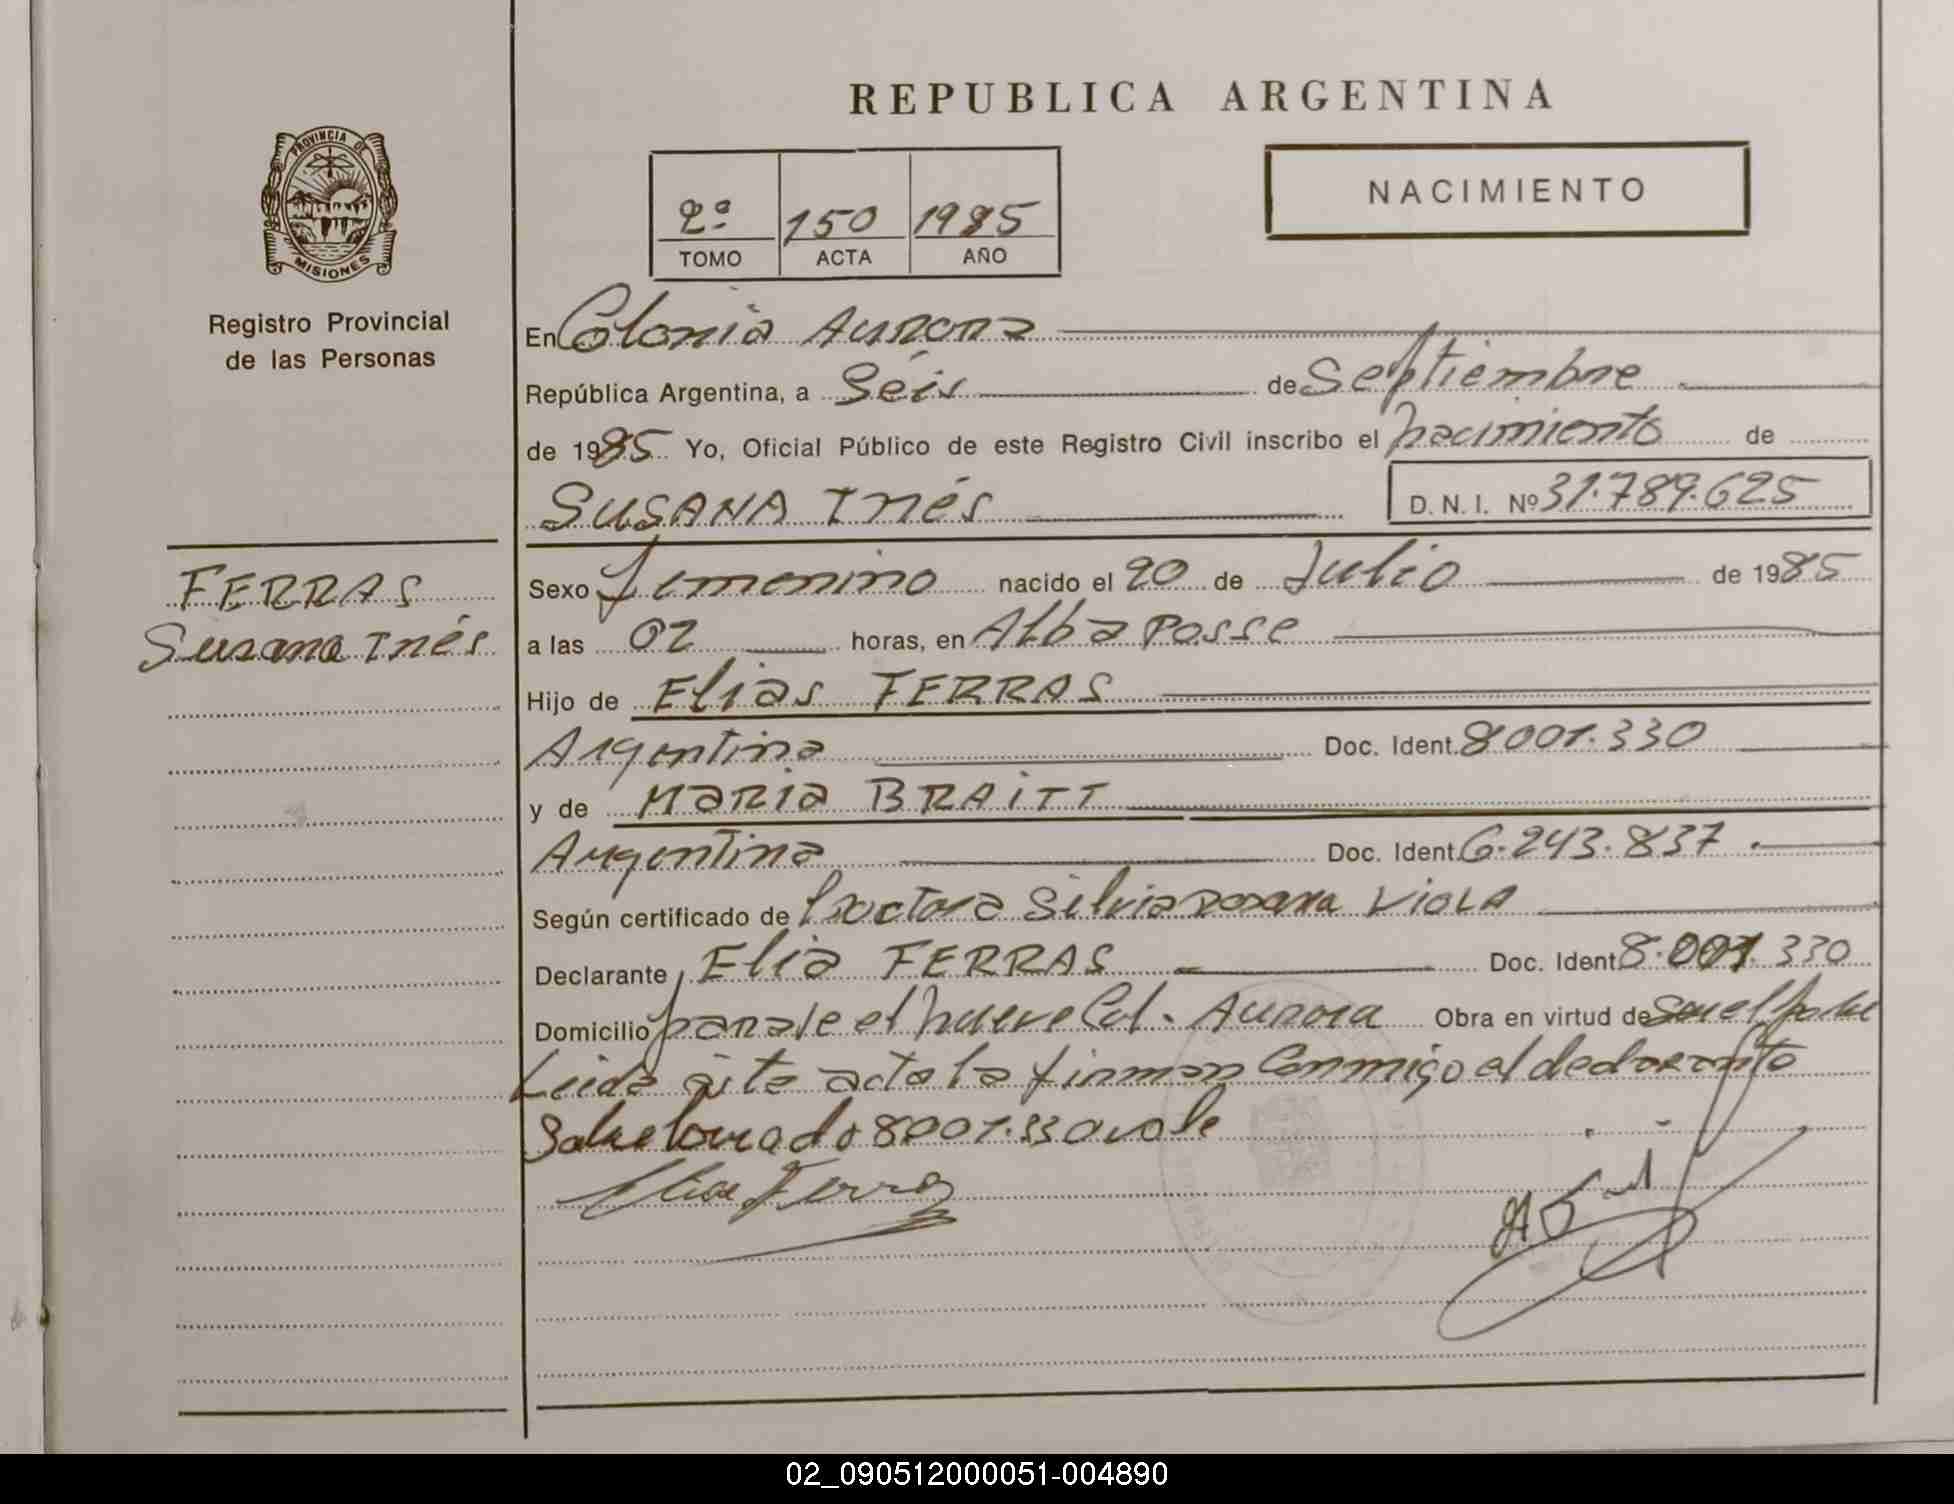 REPUBLICA ARGENTINA
PROVINCIA DE
MISIONES
Registro Provincial
de las Personas
2º 150 1985
TOMO ACTA AÑO
NACIMIENTO
En Colonia Aurora
República Argentina, a Séis de Septiembre
de 1985 Yo, Oficial Público de este Registro Civil inscribo el nacimiento de
SUSANA Inés D. N. I. Nº 31.789.625
FERRAS
Susana Inés
Sexo femenino nacido el 20 de Julio de 1985
a las 02 horas, en Alba Posse
Hijo de Elias FERRAS
Argentina Doc. Ident. 8001.330
y de Maria BRAITT
Argentina Doc. Ident. 6.243.837
Según certificado de Doctora Silvia Rosana VIOLA
Declarante Elia FERRAS Doc. Ident. 8.001.330
Domicilio paraje el nueve Col. Aurora Obra en virtud de Ser el padre
Leida ésta acta la firman Conmigo el declarante
Sobreborrado 8001.330 vale
Elias Ferras
02_090512000051-004890